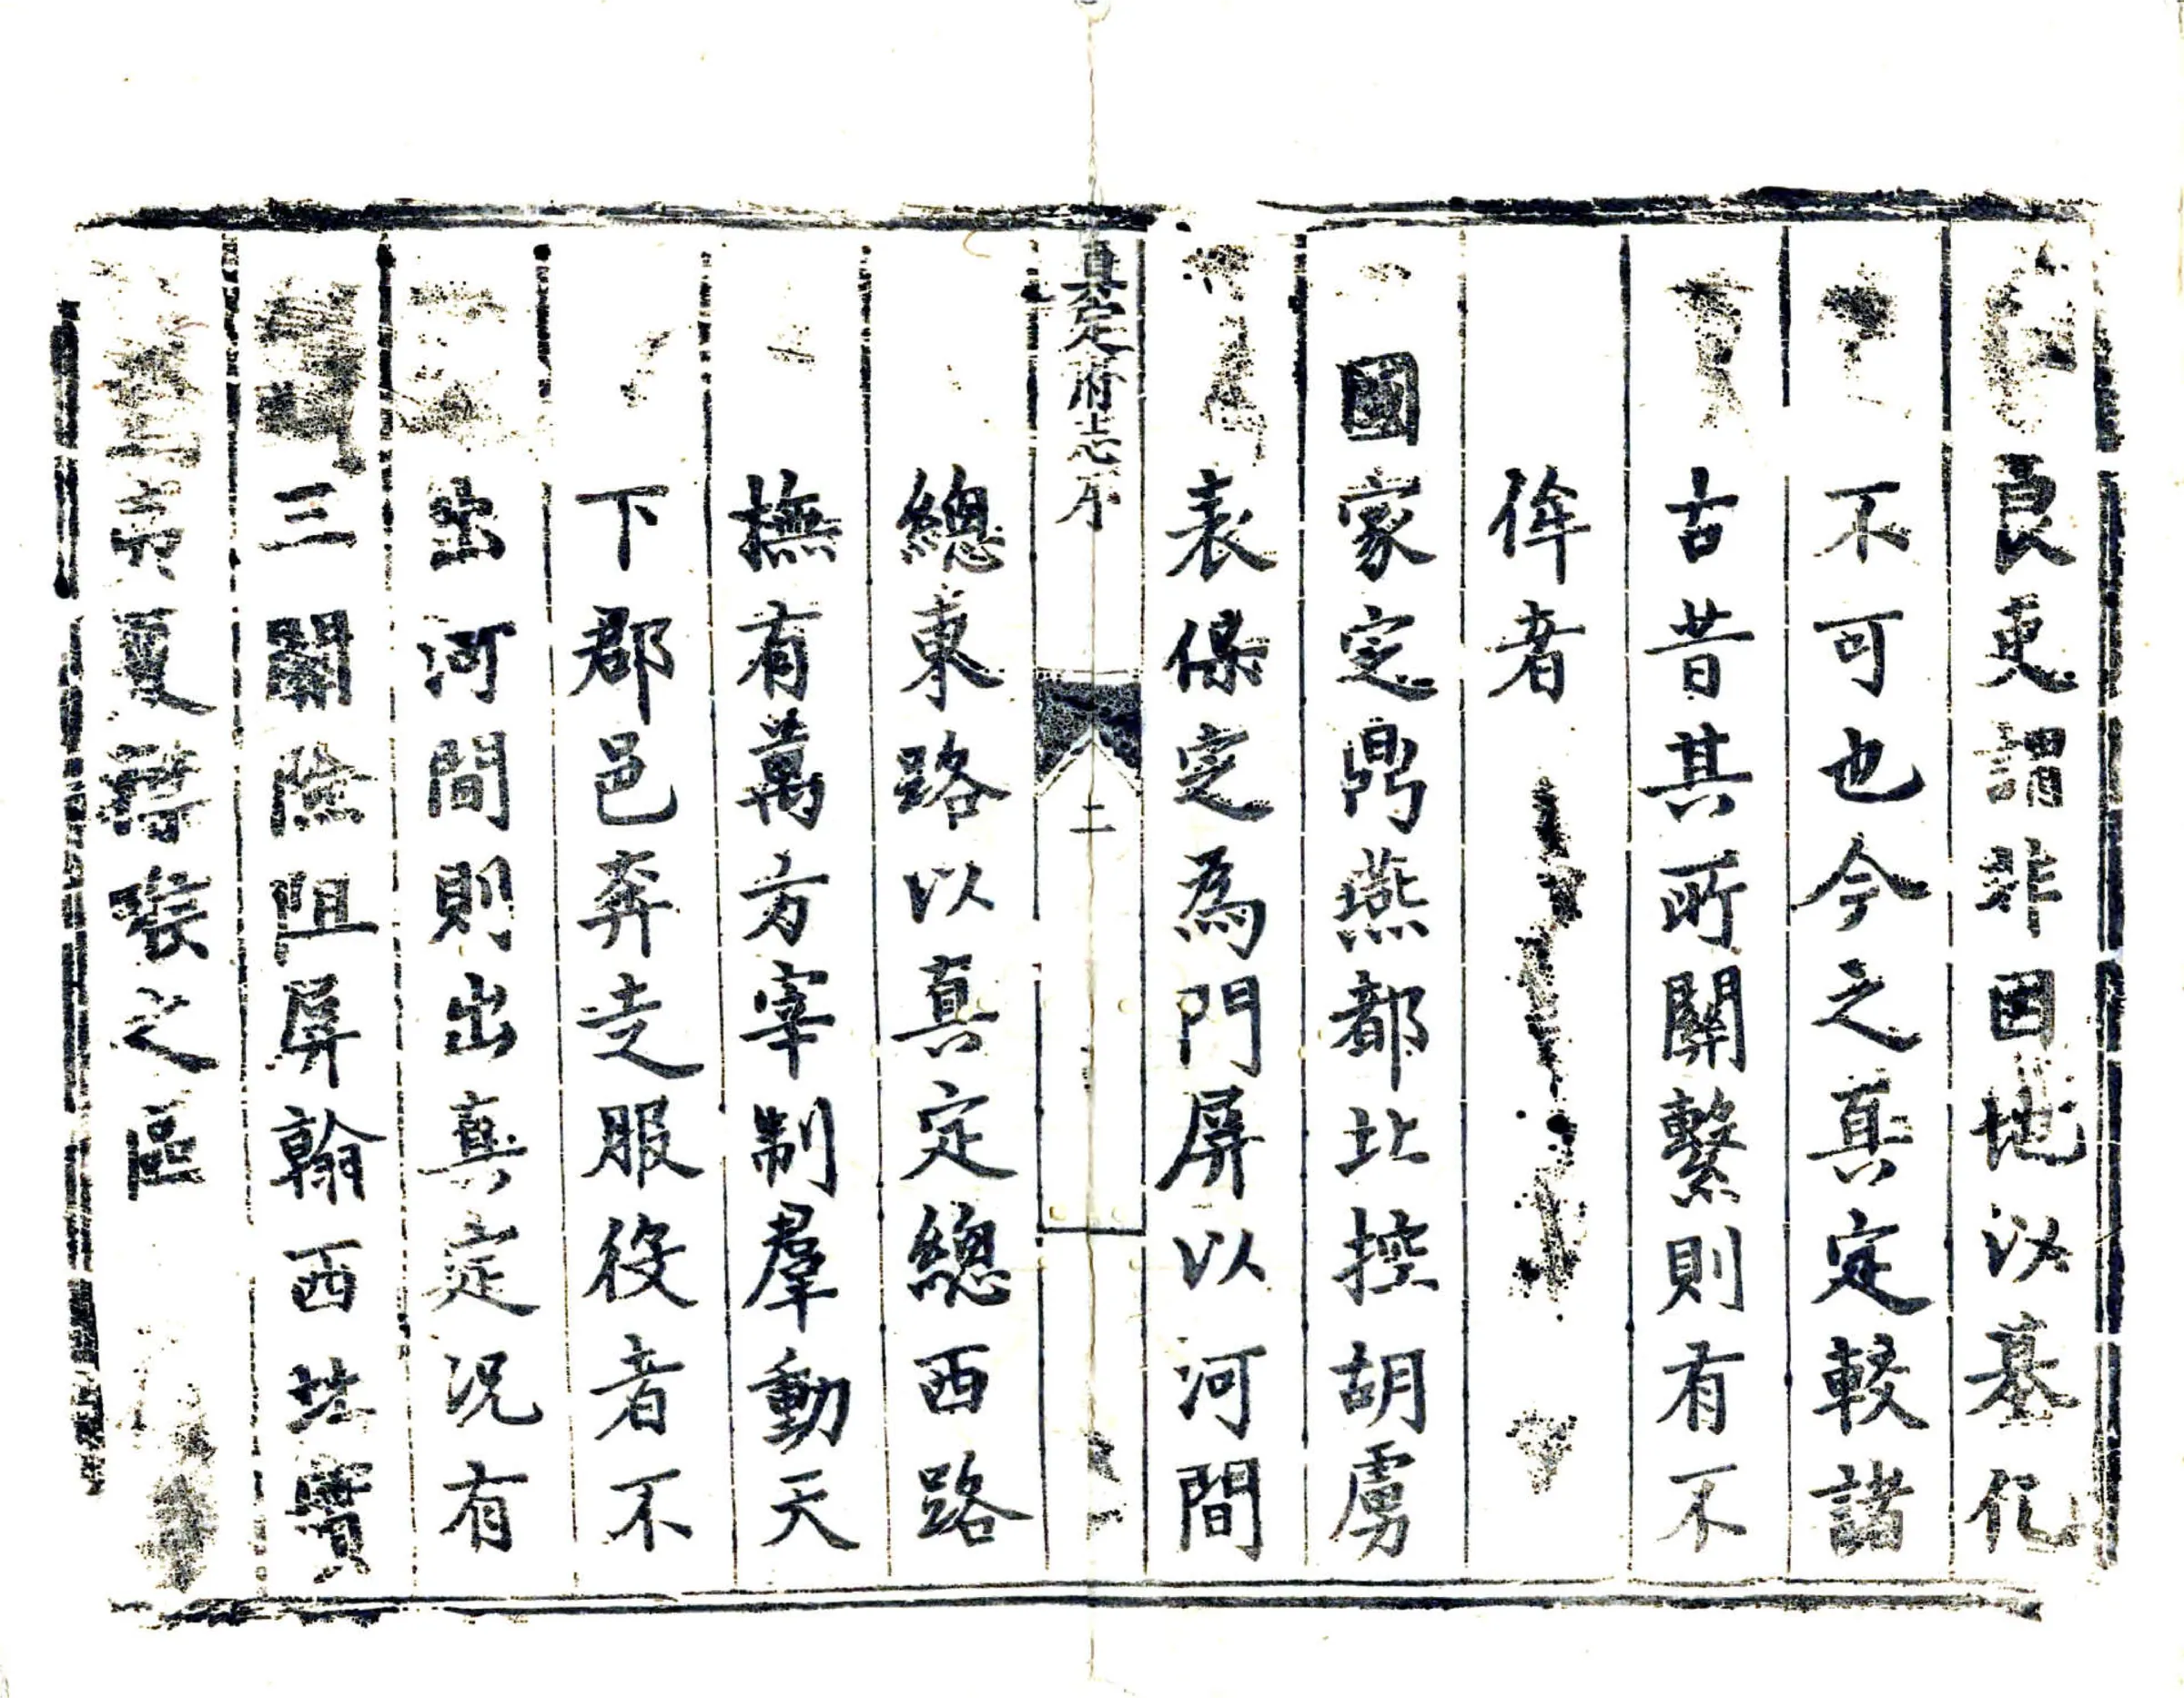 良吏謂非因地以基化
不可也今之真定較諸
古昔其所關繫則有不
侔者
國家定鼎燕都北控胡虜
表保定為門屏以河間
真定府志序
二
總東路以真定總西路
撫有萬方宰制羣動天
下郡邑奔走服役者不
出河間則出真定況有
三關險阻屏翰西北實
夷夏襟喉之區